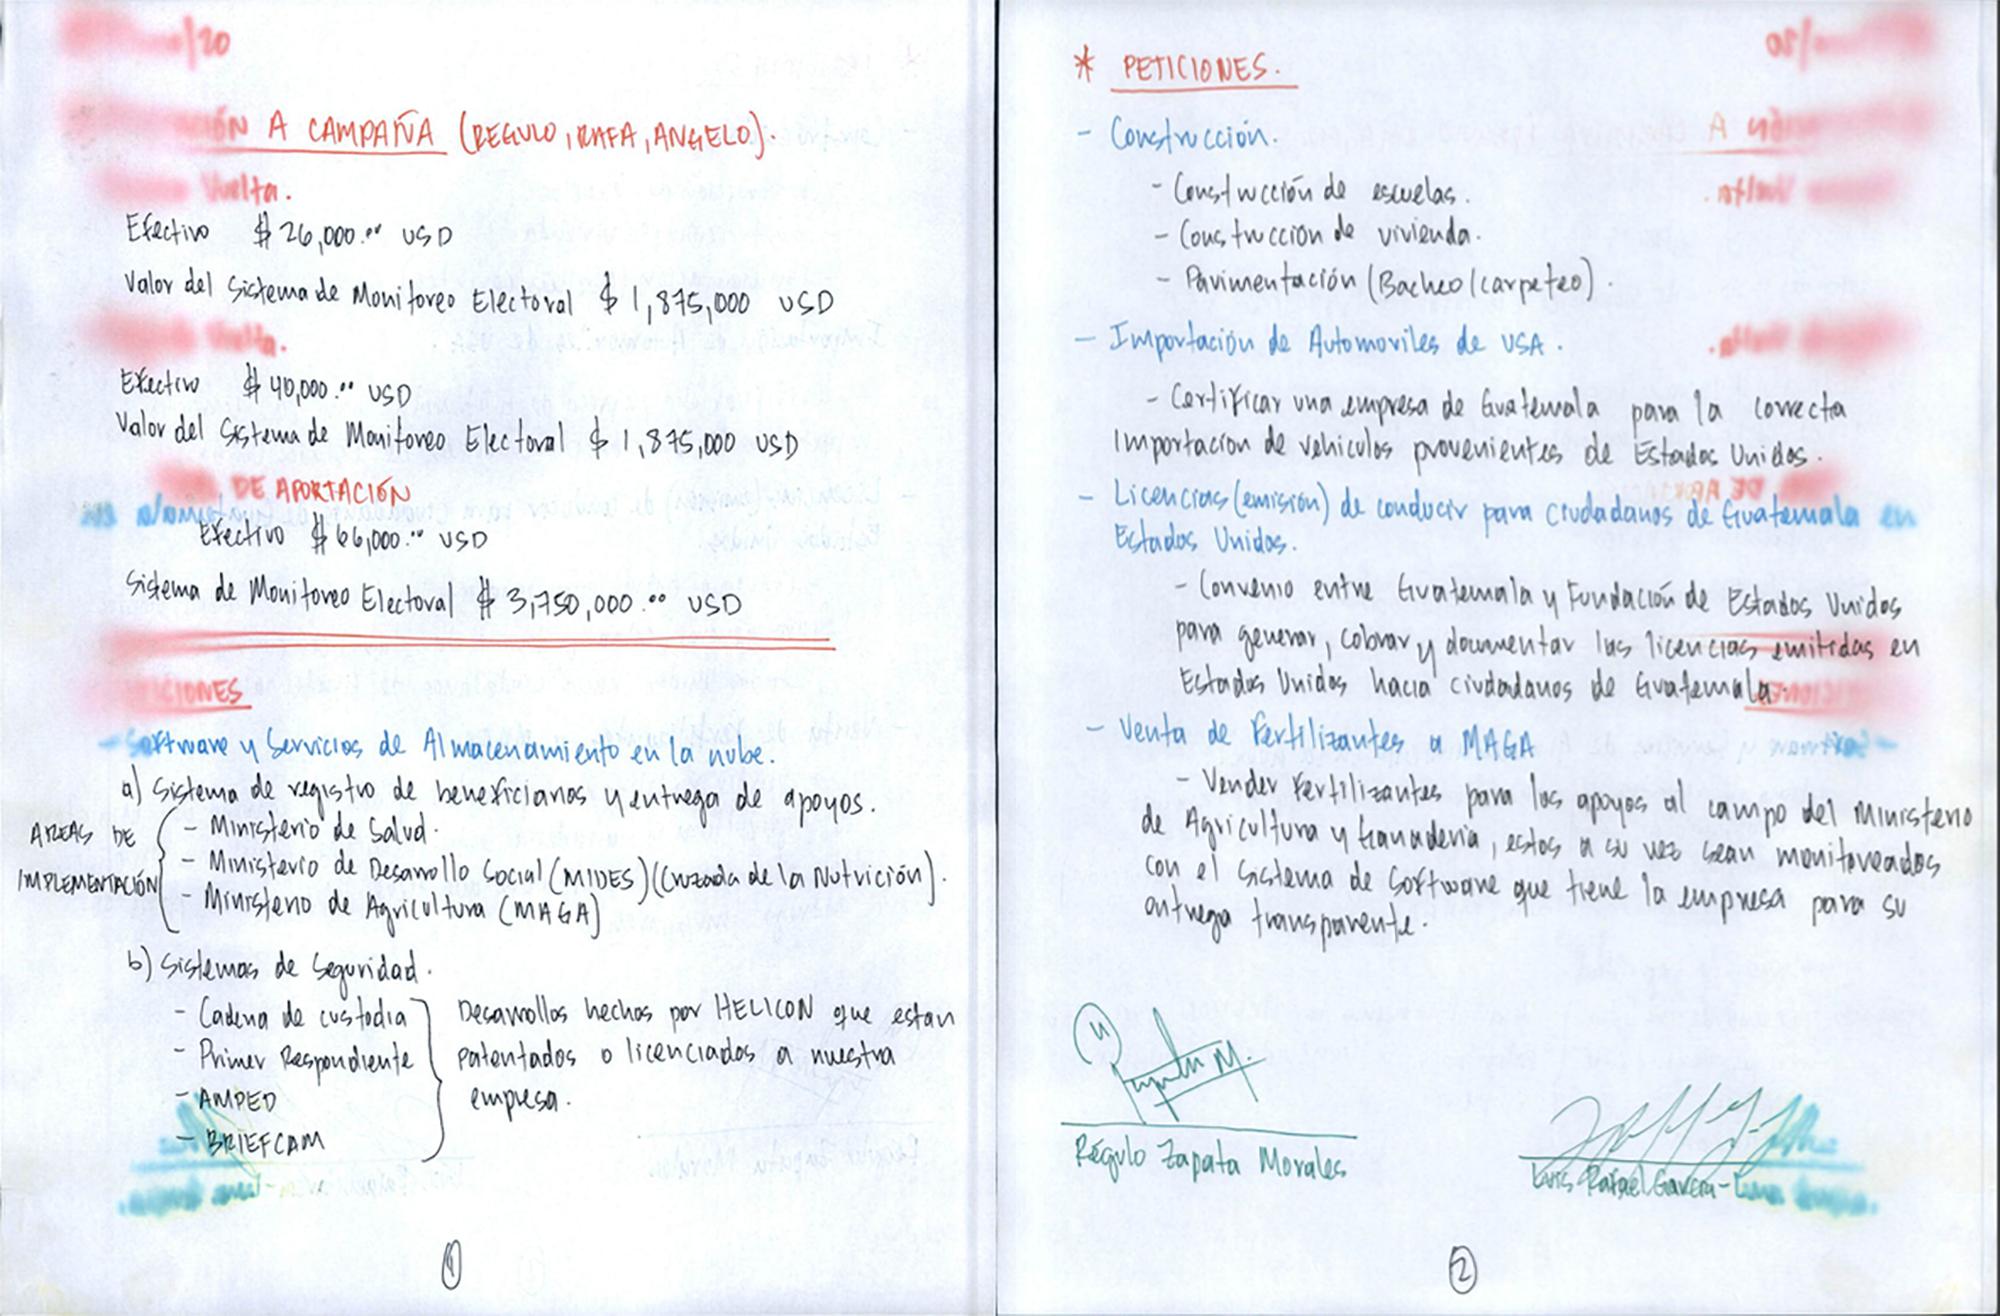 /20
IÓN A CAMPAÑA (REGULO, RAFA, ANGELO).
Vuelta.
Efectivo $ 26,000.00 USD
Valor del Sistema de Monitoreo Electoral $ 1,875,000 USD
Vuelta.
Efectivo $ 40,000.00 USD
Valor del Sistema de Monitoreo Electoral $ 1,875,000 USD
DE APORTACIÓN
Efectivo $ 66,000.00 USD
Sistema de Monitoreo Electoral $ 3,750,000.00 USD
ICIONES
- Software y Servicios de Almacenamiento en la nube.
a) Sistema de registro de beneficiarios y entrega de apoyos.
AREAS DE IMPLEMENTACIÓN
- Ministerio de Salud.
- Ministerio de Desarrollo Social (MIDES) (Cruzada de la Nutrición).
- Ministerio de Agricultura (MAGA)
b) Sistemas de Seguridad.
- Cadena de custodia
- Primer Respondiente
- AMPED
- BRIEFCAM
Desarrollos hechos por HELICON que estan
patentados o licenciados a nuestra
empresa.
1
* PETICIONES.
- Construcción.
- Construcción de escuelas.
- Construcción de vivienda.
- Pavimentación (Bacheo/carpeteo).
- Importación de Automoviles de USA.
- Certificar una empresa de Guatemala para la correcta
Importacion de vehiculos provenientes de Estados Unidos.
- Licencias (emisión) de conducir para ciudadanos de Guatemala en
Estados Unidos.
- Convenio entre Guatemala y Fundación de Estados Unidos
para generar, cobrar y documentar las licencias emitidas en
Estados Unidos hacia ciudadanos de Guatemala.
- Venta de Fertilizantes a MAGA
- Vender Fertilizantes para los apoyos al campo del Ministerio
de Agricultura y Ganaderia, estos a su vez sean monitoreados
con el sistema de software que tiene la empresa para su
entrega transparente.
Régulo Zapata Morales
Luis Rafael García-
2